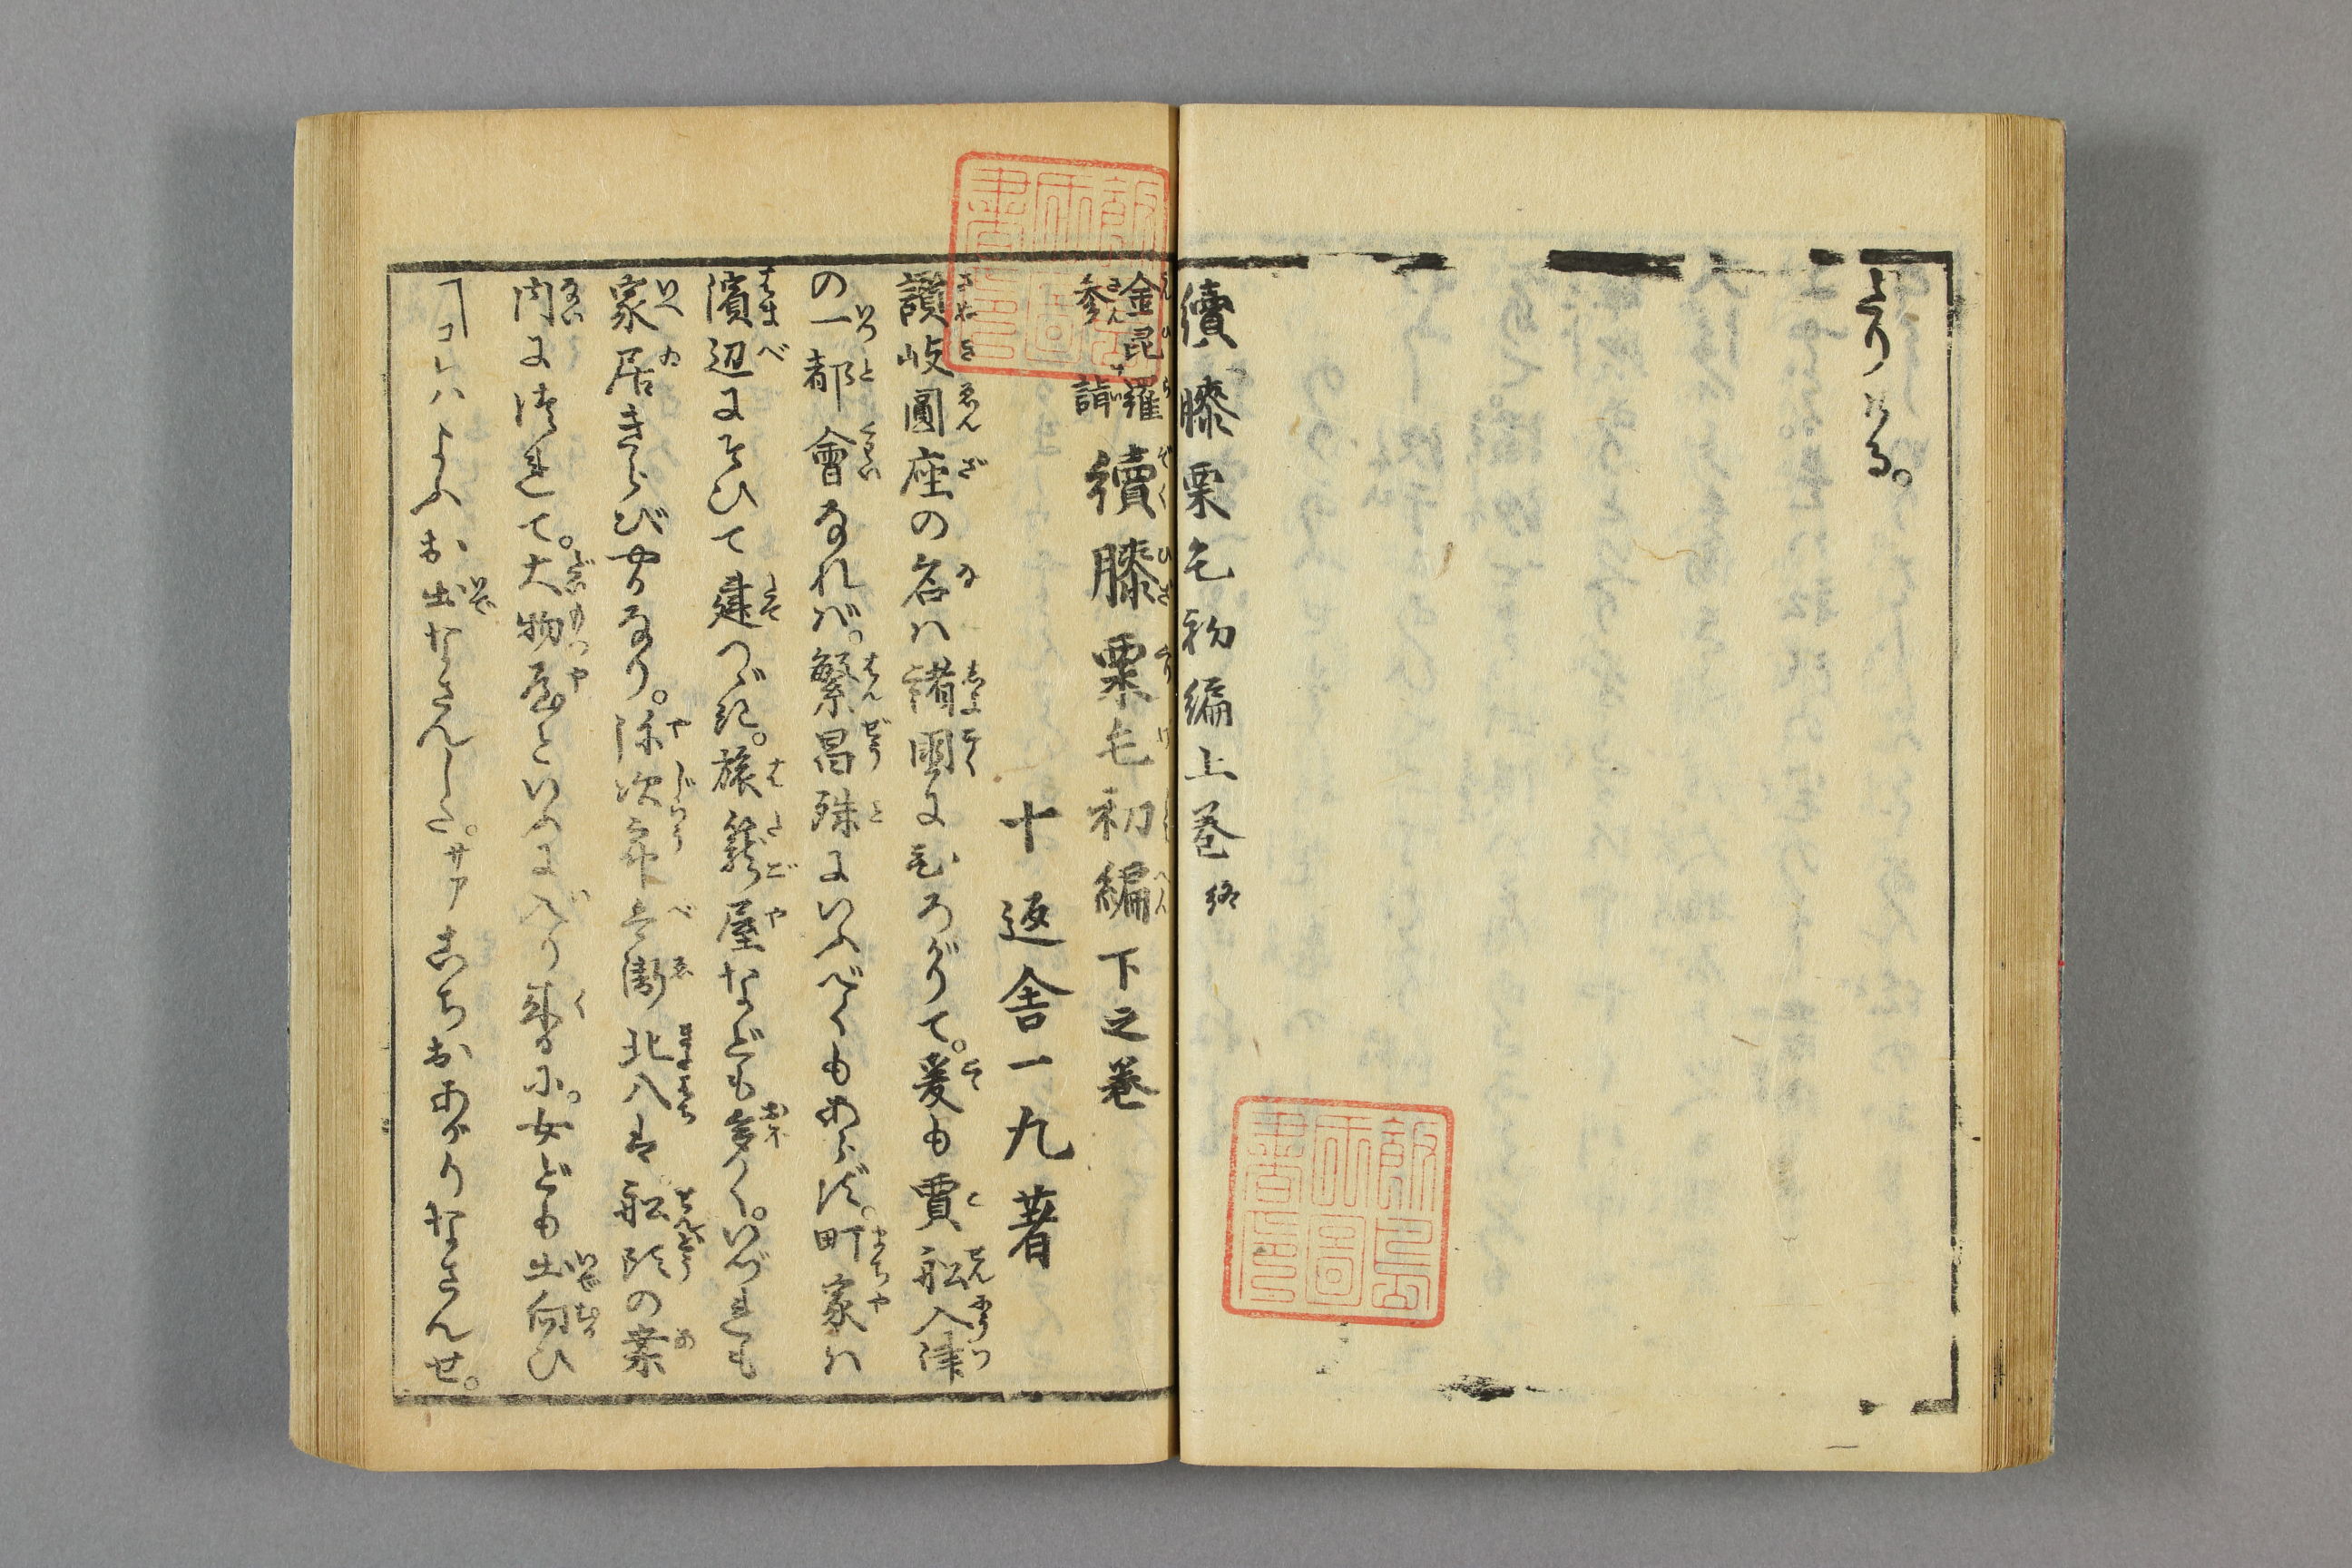 より行る。
續膝栗毛初編上巻終
金毘羅
参詣
續膝栗毛初編下之巻
十返舎一九著
讃岐圓座の名ハ諸国にひろがりて。爰も賈舩入津
の一都會なれバ。繁昌殊にいふべくもあらず。町家ハ
濱辺にそひて建つゞき。旅籠屋なども多く。いづれも
家居きらびやかなり。弥次郎兵衛北八は船頭の案
内に連て。大物屋といふに入り来るに。女ども出向ひ
「コレハよふお出なさんした。サアこちおあがりなさんせ。